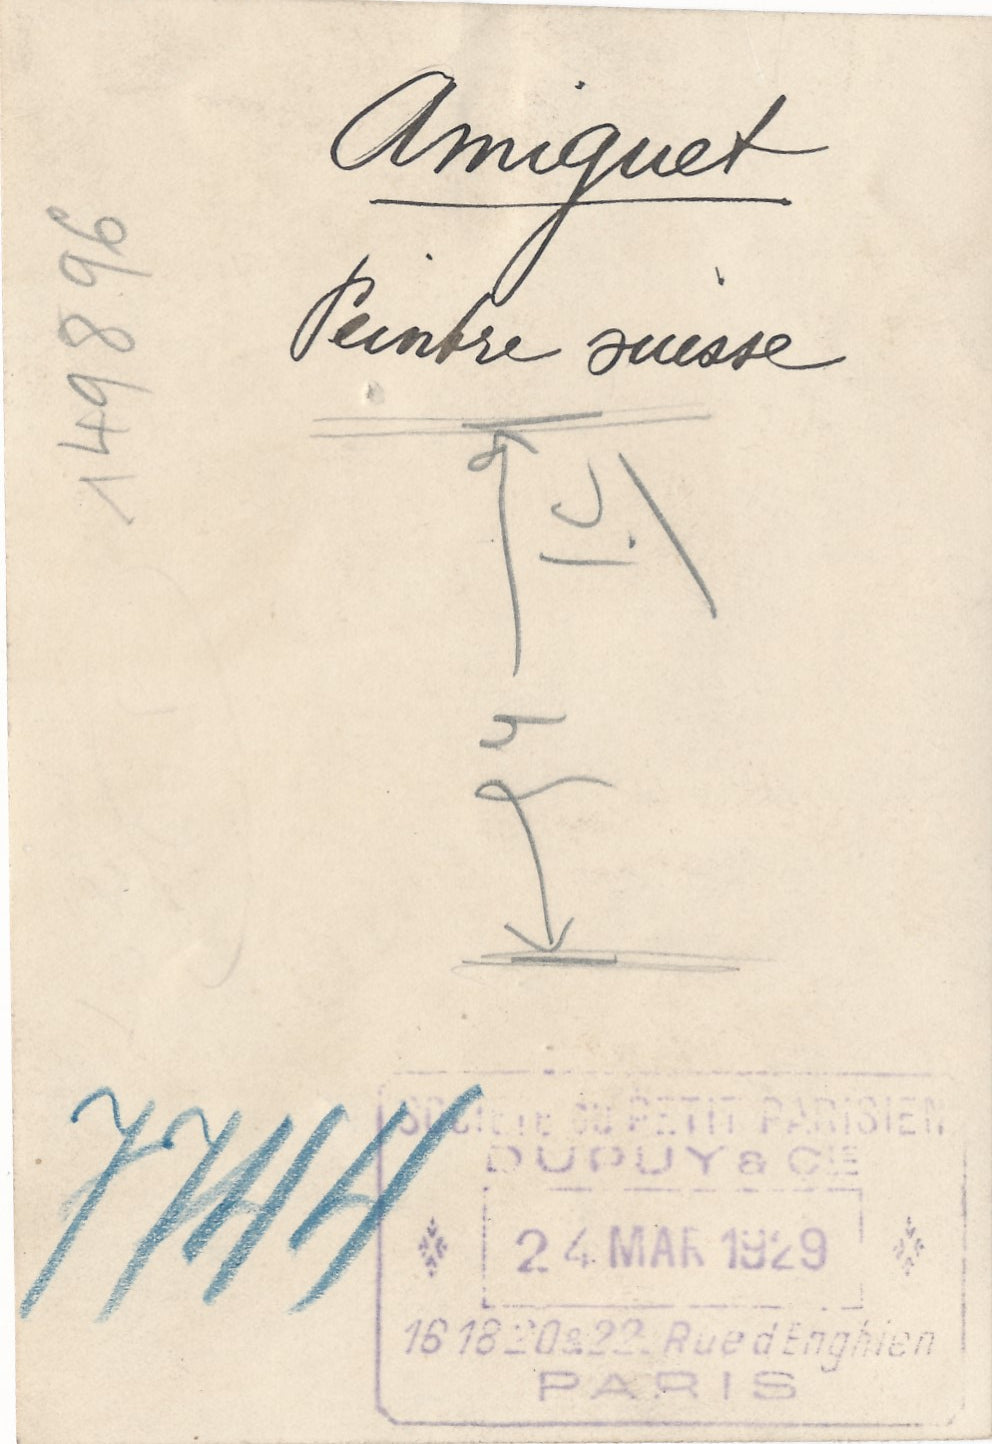 Amiguet
Peintre suisse
149896
4
7744
SOCIÉTÉ du PETIT PARISIEN
DUPUY & CIE
24 MAR 1929
16 18 20 & 22 Rue d'Enghien
PARIS